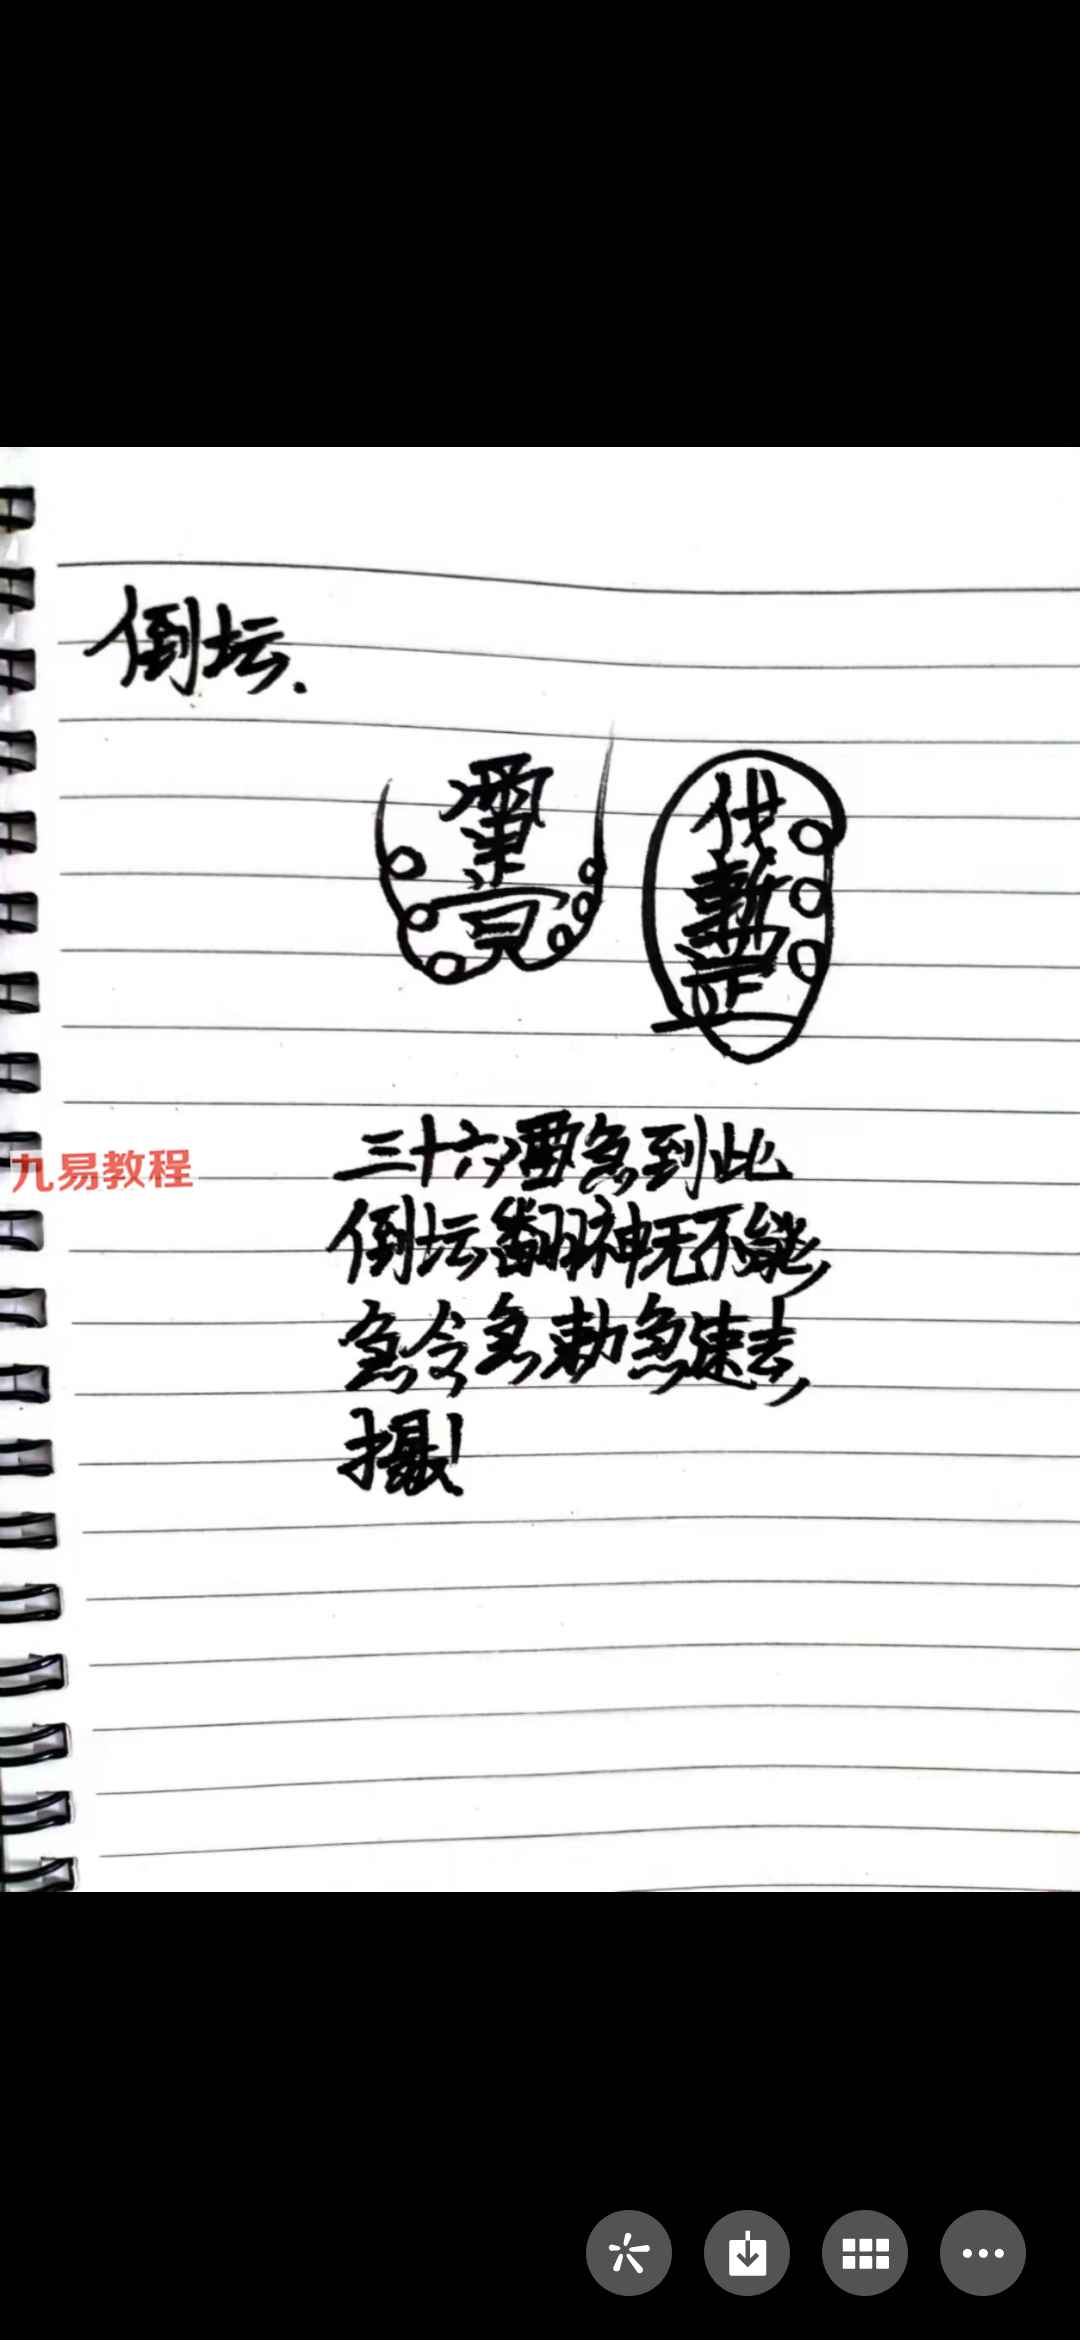 倒坛.
伐
三十六酒急到此
倒坛翻神无不能,
急令急勅急速去,
摄!
九易教程